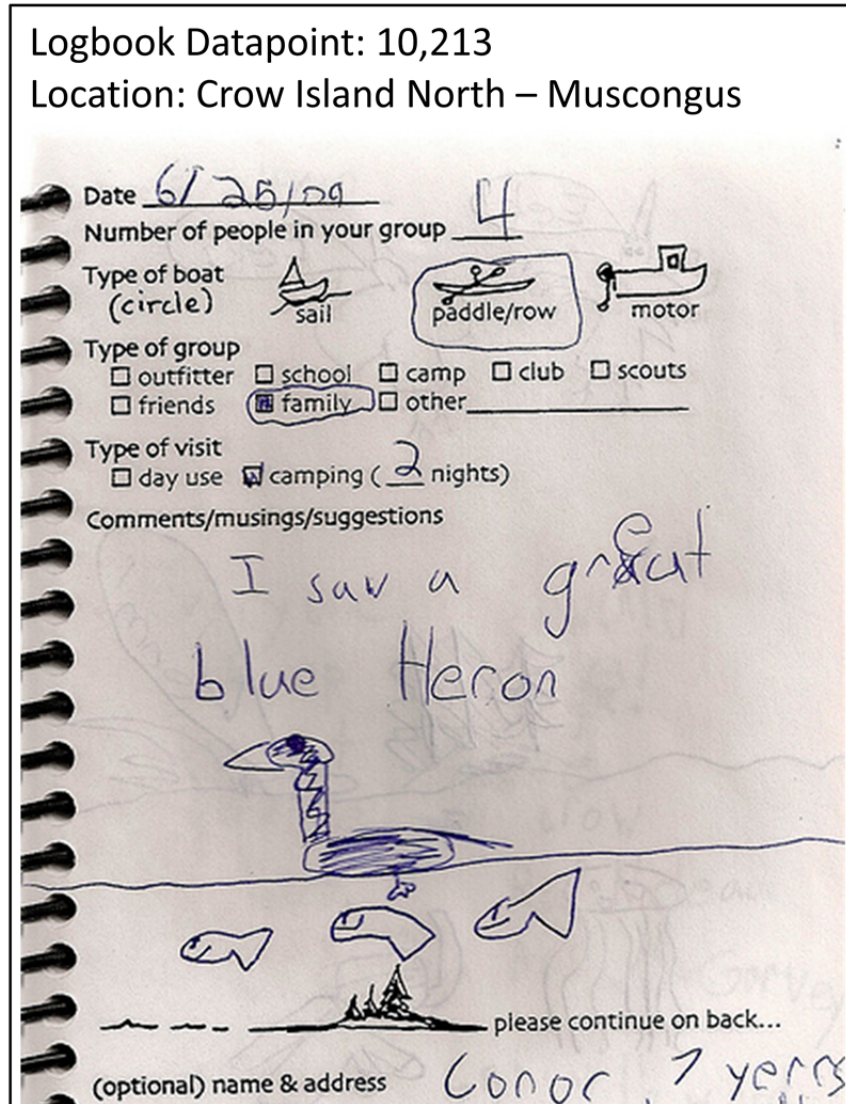 Logbook Datapoint: 10,213
Location: Crow Island North – Muscongus
Date 6/25/09
Number of people in your group 4
Type of boat
(circle)
sail paddle/row motor
Type of group
outfitter school camp club scouts
friends family other
Type of visit
day use camping (2 nights)
Comments/musings/suggestions
I sav a great
blue Heron
please continue on back...
(optional) name & address Conor, 7 yerrs